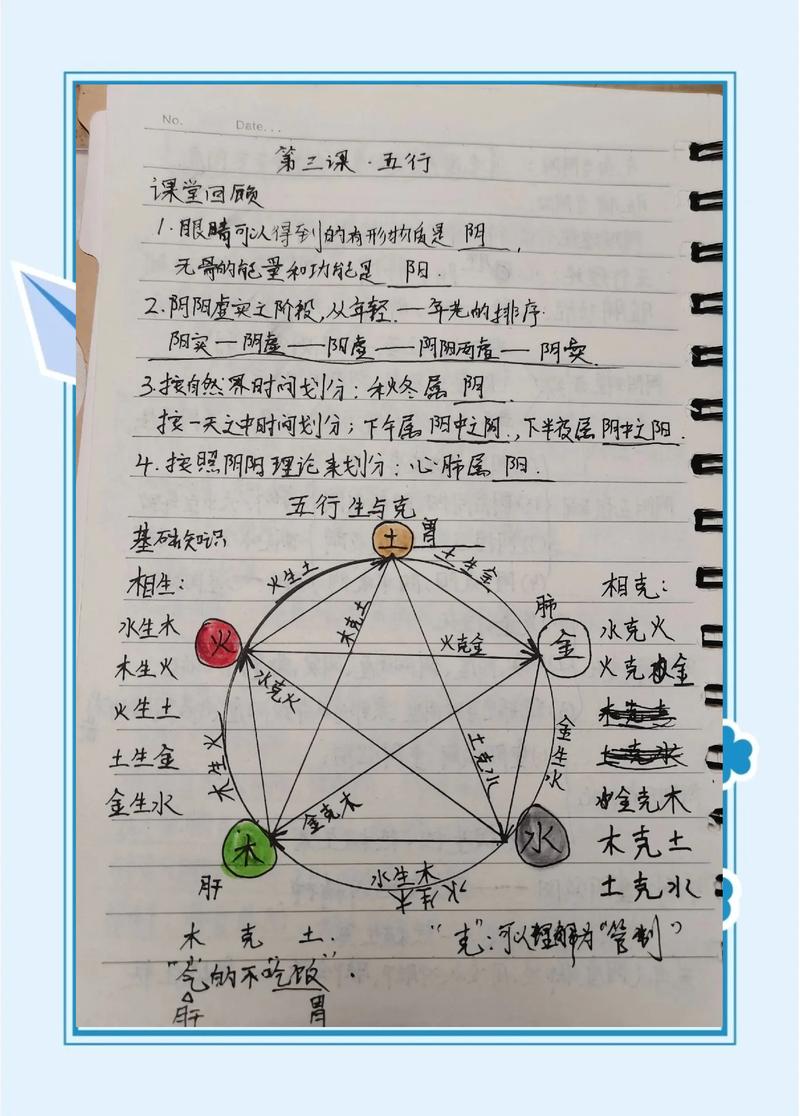 No.
Date...
第三课·五行
课堂回顾
1.眼睛可以得到的有形物质是 阴 ,
无形的能量和功能是 阳.
2.阴阳虚实之阶段,从年轻.—年老的排序.
阳实—阴虚—阳虚—阴阳两虚—阴实.
3.按自然界时间划分:秋冬属 阴.
按一天之中时间划分;下午属 阳中之阴.,下半夜属 阴中之阳.
4.按照阴阳理论来划分:心肺属 阳.
五行生与克
基础知识
土 胃
火生土
土生金
相生:
水生木
木生火
火生土
土生金
金生水
火
木克土
火克金
水克火
肺
金
相克:
水克火
火克金
金克木
木克土
土克水
木生火
金克木
土克水
金生水
木
水
水生木
肝
木 克 土.
"克":可以理解为"管制"
"气的不吃饭".
肝
胃